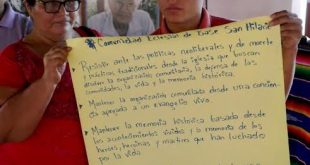 * Comunidad Eclesial de Base San Hilario
Resistir ante las políticas neoliberales y de muerte
y prácticas tradicionales desde la iglesia que buscan
la organización comunitaria, la defensa de las
comunidades, la vida y la memoria histórica.
Mantener la organización comunitaria desde otra conciencia
apegada a un evangelio vivo
Mantener la memoria histórica basada desde
los acontecimientos vividos y la memoria de los
heroes, heroínas y martires que han luchado
por la vida.